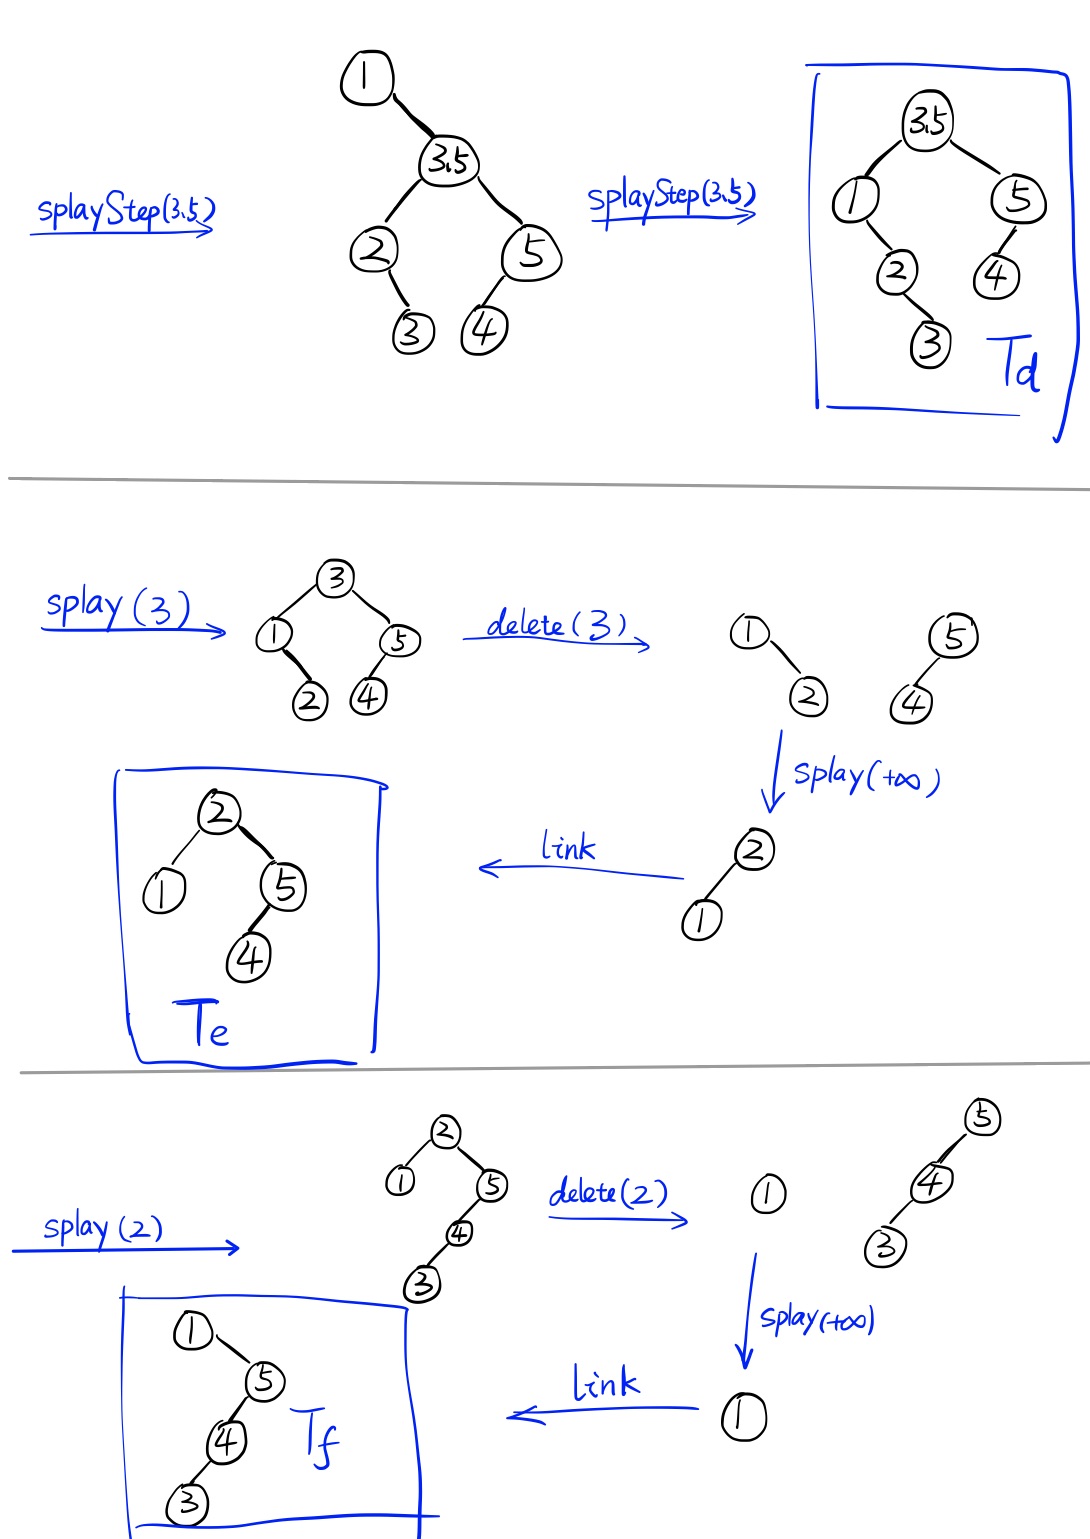 1
3.5
splayStep(3.5)
2 5
3 4
splayStep(3.5)
3.5
1 5
2 4
3
Td
splay(3)
3
1 5
2 4
delete(3)
1 5
2 4
splay(+∞)
2
1
link
2
1 5
4
Te
splay(2)
2
1 5
4
3
delete(2)
1
5
4
3
splay(+∞)
1
link
1
5
4
3
Tf